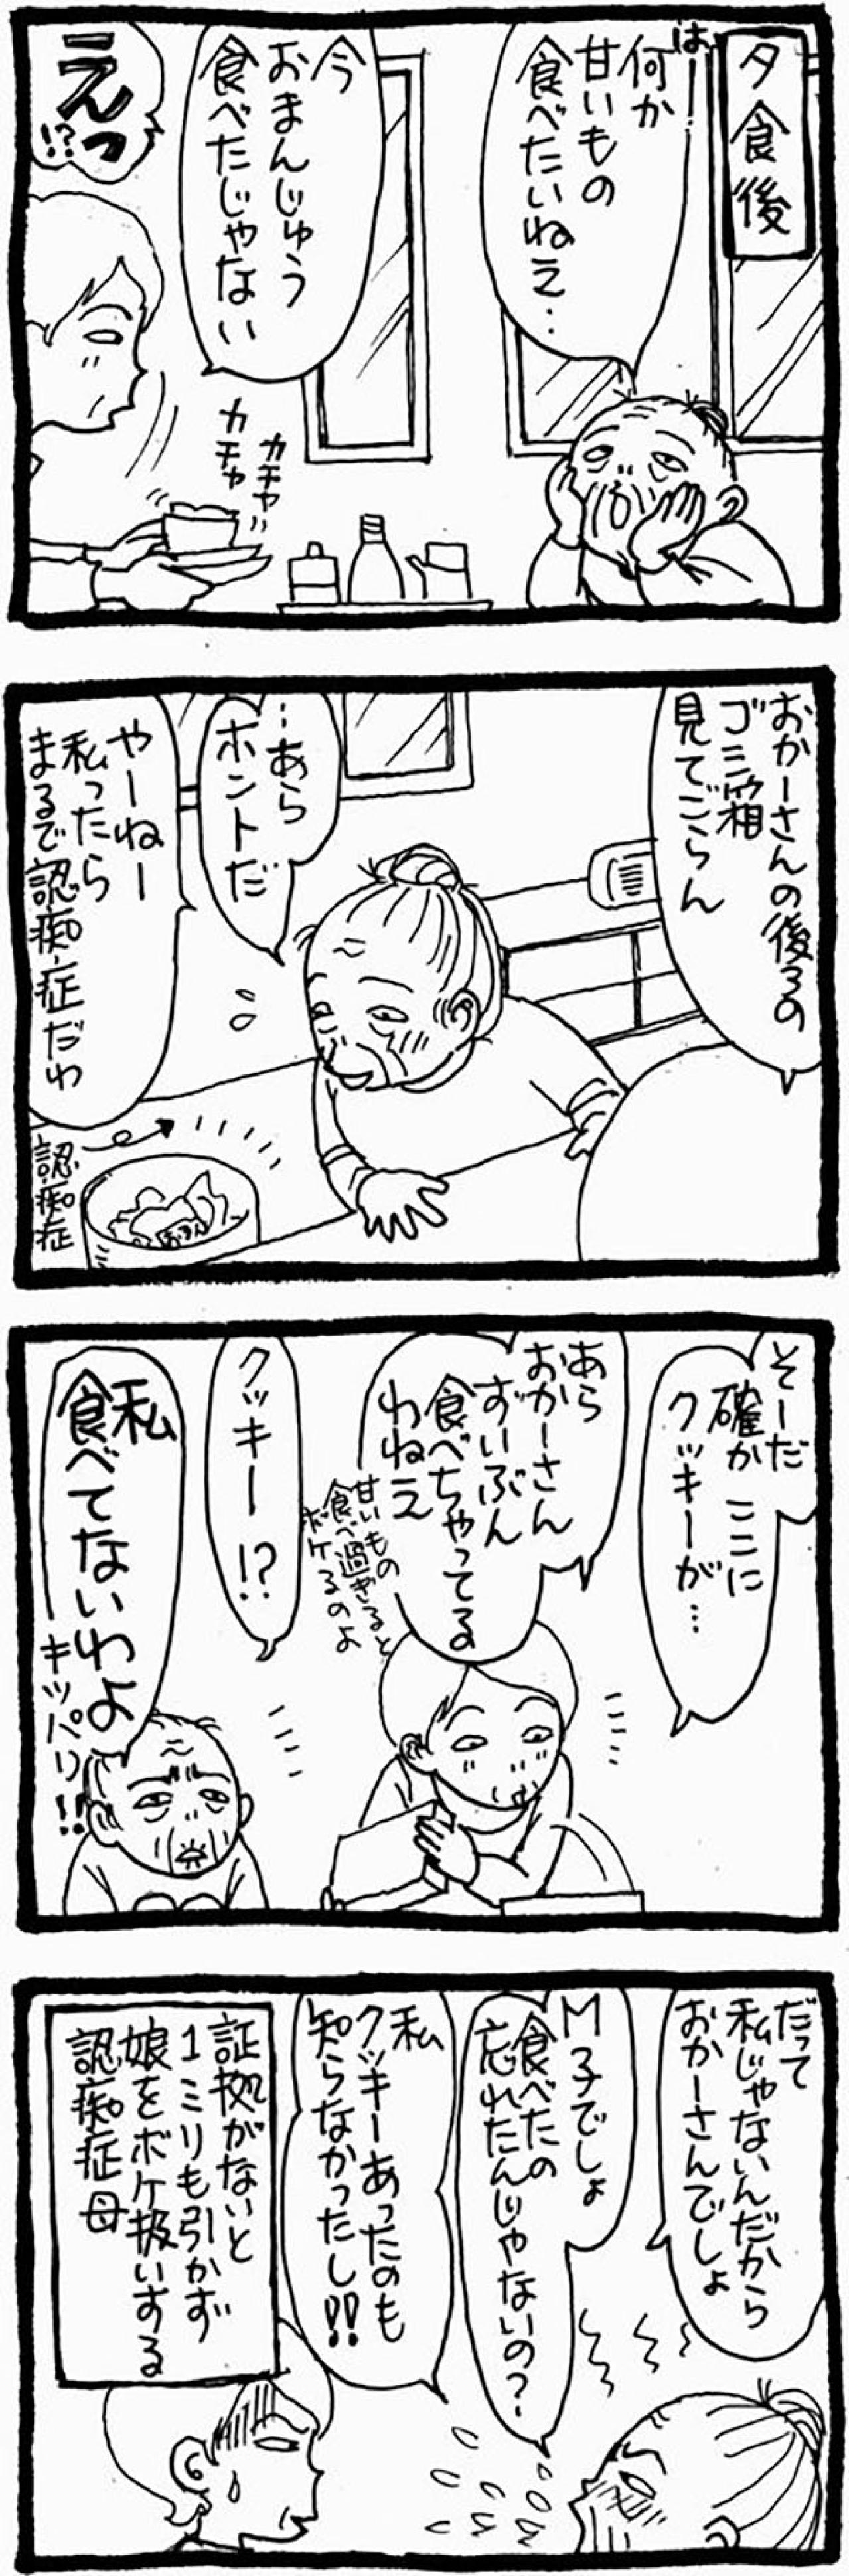 夕食後
はー！
何か
甘いもの
食べたいねえ‥
今
おまんじゅう
食べたじゃない
えっ
!?
カチャ
カチャ
おかーさんの後ろの
ゴミ箱
見てごらん
…あら
ホントだ
やーねー
私ったら
まるで認知症だわ
認知症
そーだ
確かここに
クッキーが…
あら
おかーさん
ずいぶん
食べちゃってる
わねえ
甘いもの
食べ過ぎると
ボケるのよ
クッキー!?
私
食べてないわよ
キッパリ!!
だって
私じゃないんだから
おかーさんでしょ
M子でしょ
食べたの
忘れたんじゃないの?
私
クッキーあったのも
知らなかったし!!
証拠がないと
1ミリも引かず
娘をボケ扱いする
認知症母